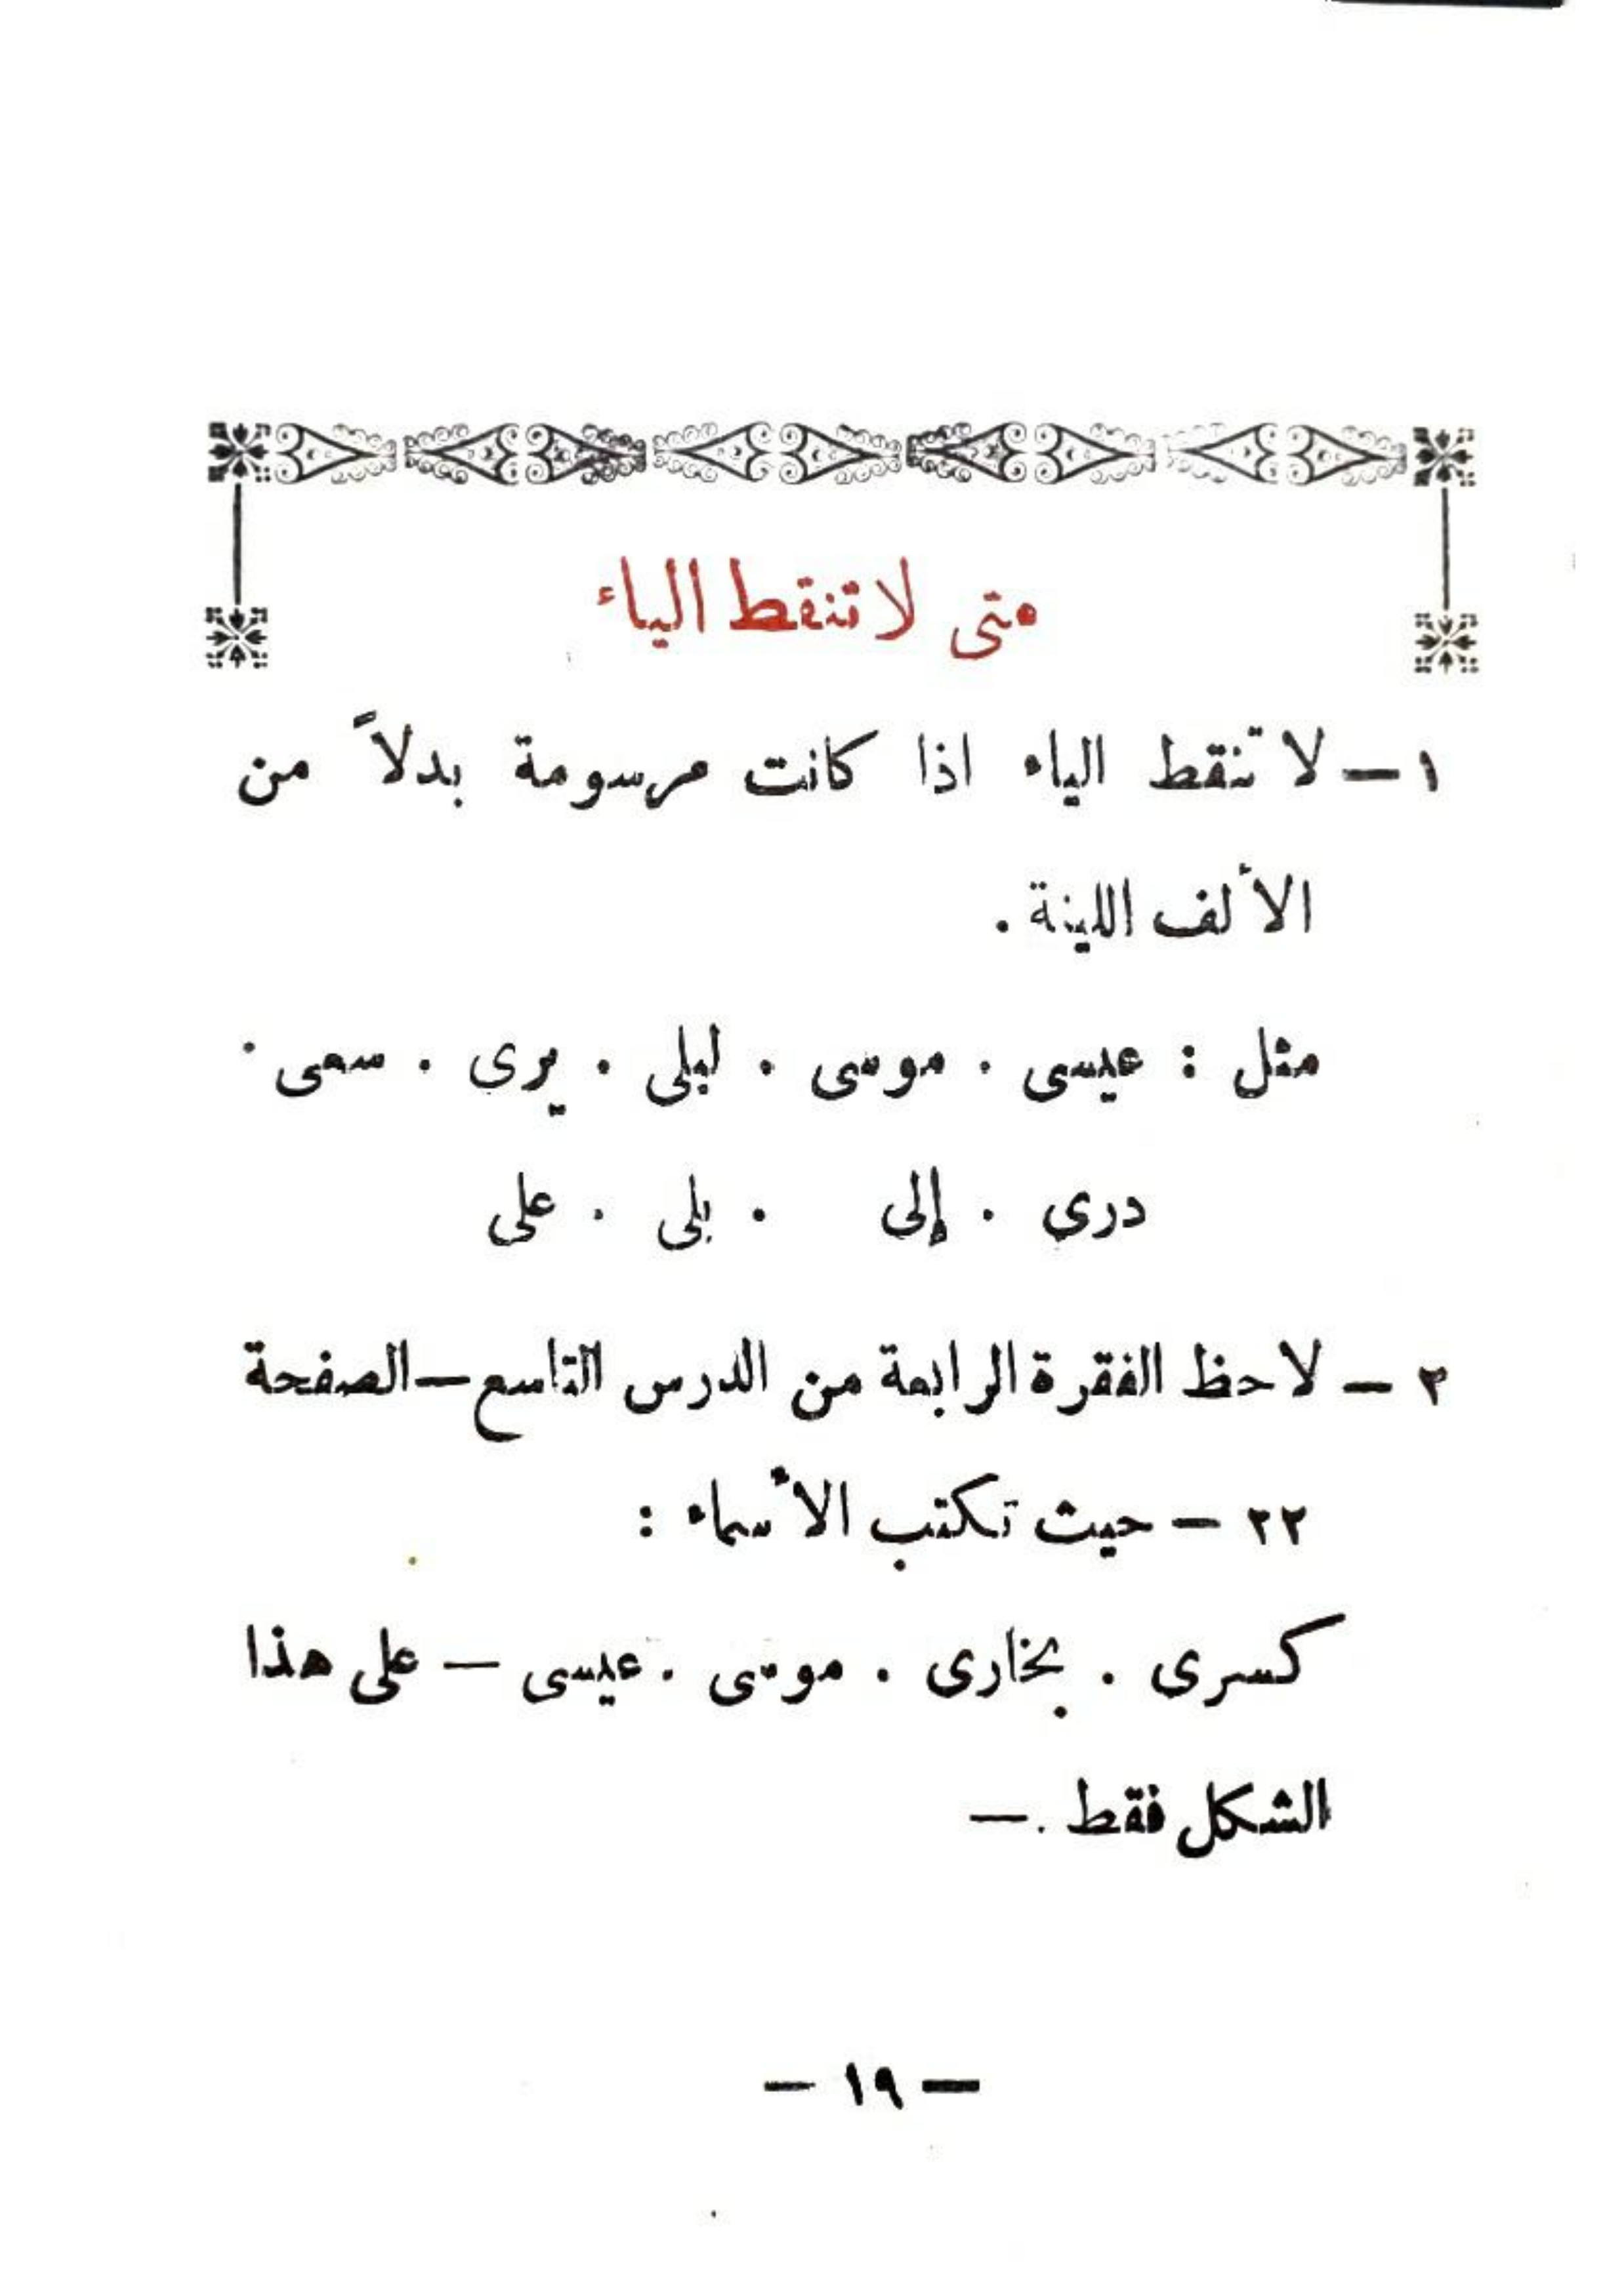 متى لا تنقط الياء
١ – لا تنقط الياء اذا كانت مرسومة بدلاً من
الألف اللينة .
مثل : عيسى . موسى . ليلى . يرى . سعى .
درى . إلى . بلى . على
٢ – لاحظ الفقرة الرابعة من الدرس التاسع – الصفحة
٢٢ – حيث تكتب الأسماء :
كسرى . بخارى . موسى . عيسى – على هذا
الشكل فقط . –
– ١٩ –